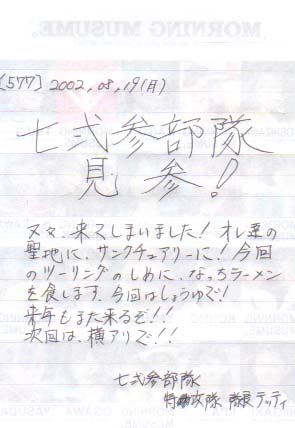 MORNING MUSUME。
[577] 2002, 08, 19(月)
七弐参部隊
見参!
又々、来てしまいました!オレ達の
聖地に、サンクチュアリーに!今回
のツーリングのしめに、なっちラーメン
を食します。今回はしょうゆで!
来年もまた来るぞ!!
次回は、横アリで!!
七弐参部隊
特攻隊 隊長テッティ